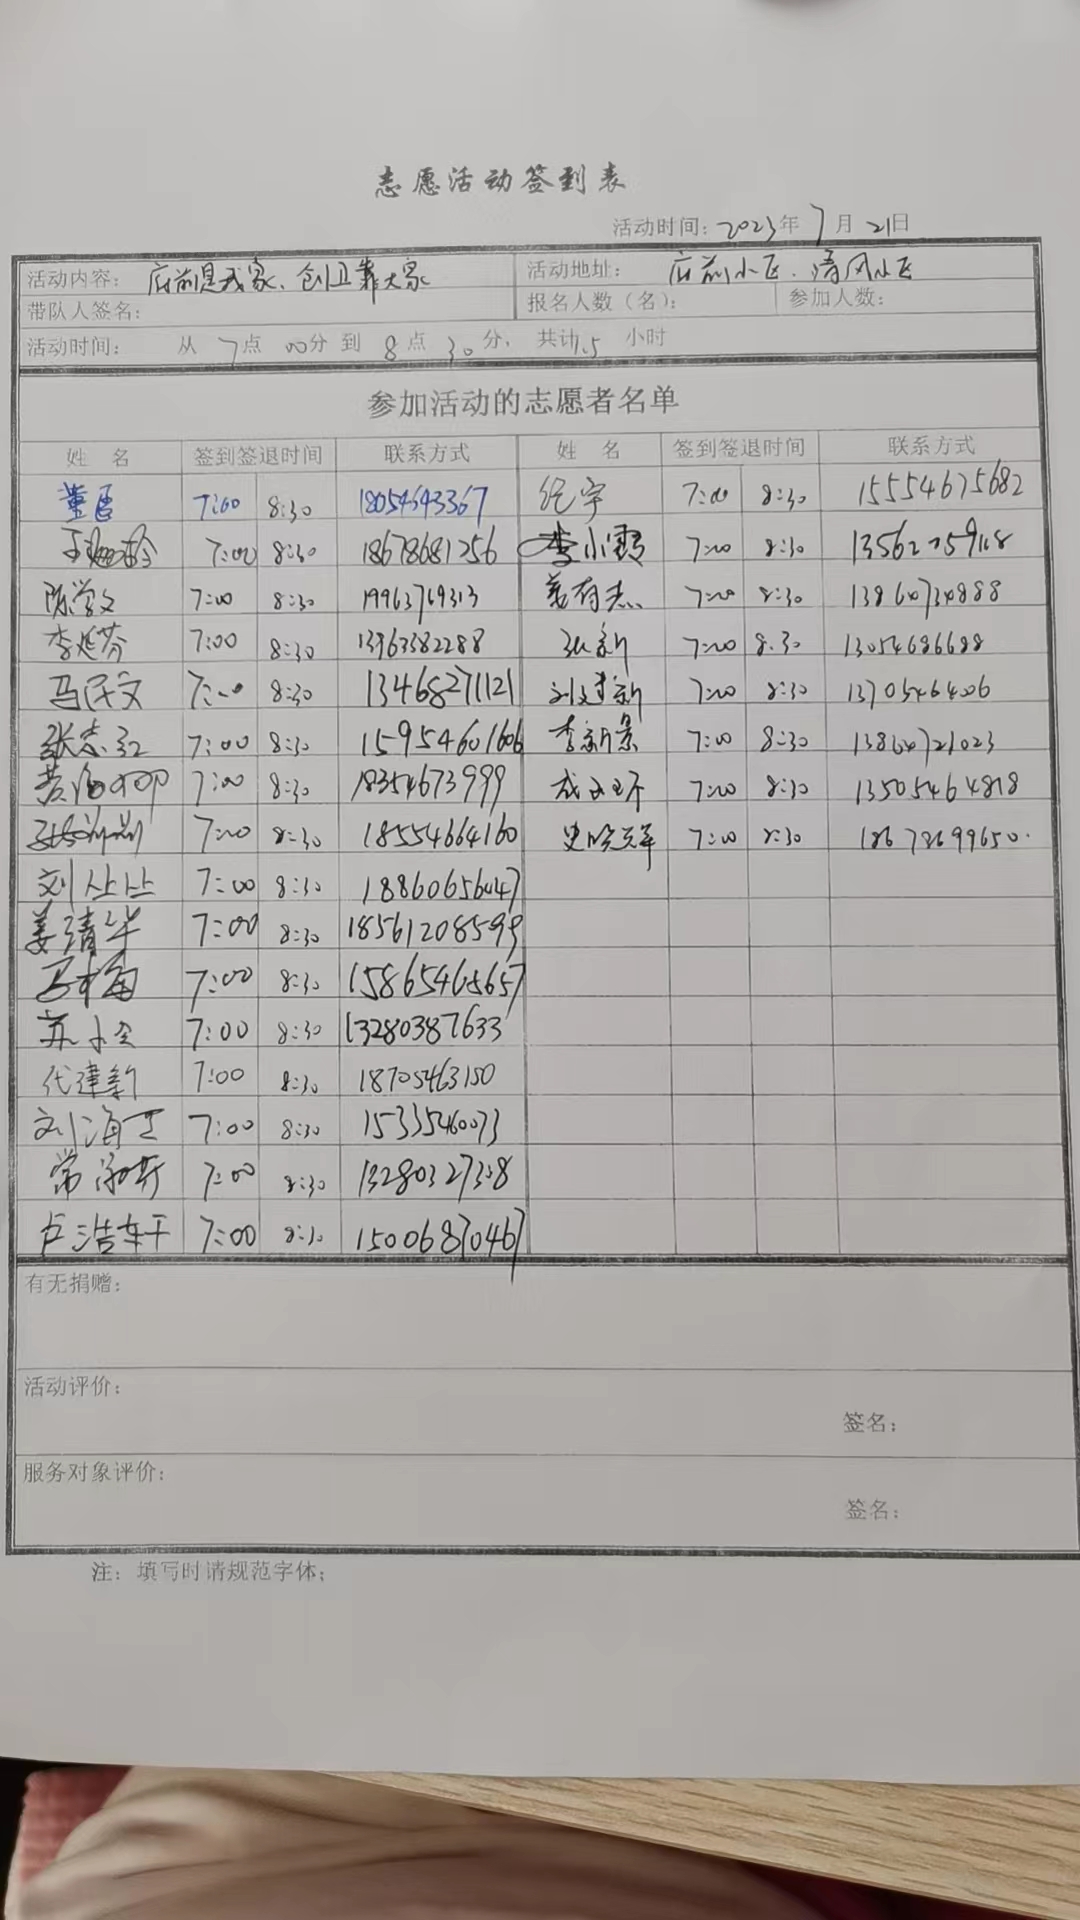 志愿活动签到表
活动时间：2023年7月21日
活动内容：府前是我家、创卫靠大家 活动地址：府前小区、清风小区
带队人签名： 报名人数（名）： 参加人数：
活动时间： 从 7点 00分 到 8点 30分， 共计1.5 小时
参加活动的志愿者名单
姓 名 签到签退时间 联系方式 姓 名 签到签退时间 联系方式
董 7:00 8:30 18054643367 纪宇 7:00 8:30 15554675682
7:00 8:30 18678681256 李小霞 7:00 8:30
陈学文 7:00 8:30 19963769313 姜有志 7:00 8:30 13864734888
李延芬 7:00 8:30 13963382288 张新 7:00 8:30 13054686688
马民文 7:00 8:30 13468271121 刘建新 7:00 8:30 1370546406
张志 7:00 8:30 15954601606 李新景 7:00 8:30 13864721023
黄海 7:00 8:30 18354673999 7:00 8:30 13505464818
7:00 8:30 18554664160 史晓军 7:00 8:30 18678699650
刘丛丛 7:00 8:30 18860656447
姜清华 7:00 8:30 18561208599
马梅 7:00 8:30 15865465657
苏小 7:00 8:30 13280387633
代建新 7:00 8:30 18705463150
刘海 7:00 8:30 15335460073
常 7:00 8:30 13280327308
卢浩轩 7:00 8:30 15006870467
有无捐赠：
活动评价：
签名：
服务对象评价：
签名：
注：填写时请规范字体；